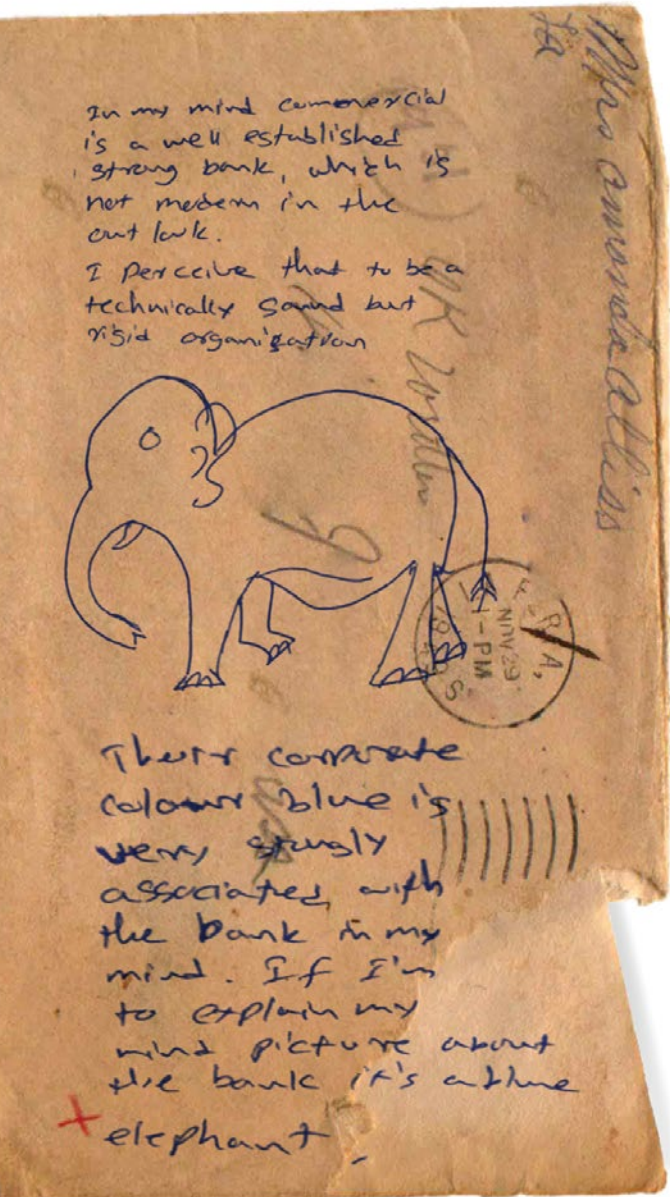 In my mind commercial
is a well established
strong bank, which is
not modern in the
out look.
I perceive that to be a
technically sound but
rigid organization
Their corporate
colour blue is
very strongly
associated with
the bank in my
mind. If I'm
to explain my
mind picture about
the bank it's a blue
elephant.
Mrs amanda
UK
NOV 29
1-PM